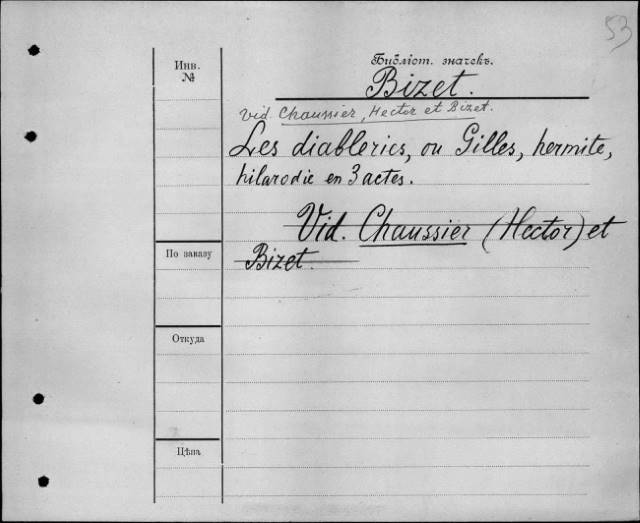 53
Инв.
№
Библіот. значекъ.
Bizet.
Vid. Chaussier, Hector et Bizet.
Les diableries, ou Gilles, hermite,
hilarodie en 3 actes.
Vid. Chaussier (Hector) et
Bizet.
По заказу
Откуда
Цѣна